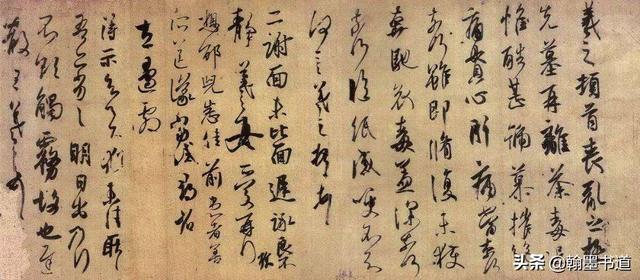 羲之頓首喪亂之極
先墓再離荼毒追
惟酷甚號慕摧絕
痛貫心肝痛當奈何
奈何雖即脩復未獲
奔馳哀毒益深奈何
奈何臨紙感哽不知
何言羲之頓首頓首
二謝面未比面遲詠良不
靜羲之女愛再拜
想邵兒悉佳前患者善
左邊劇
得示知足下猶未佳耿耿
吾亦劣劣明日出乃行
不欲觸霧故也遲
散王羲之頓首
头条 @翰墨书道